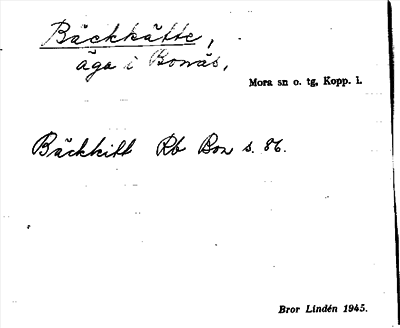 Bäckkätte,
äga i Bonäs,
Mora sn o. tg, Kopp. l.
Bäckkitt Rb Bon s. 86.
Bror Lindén 1945.